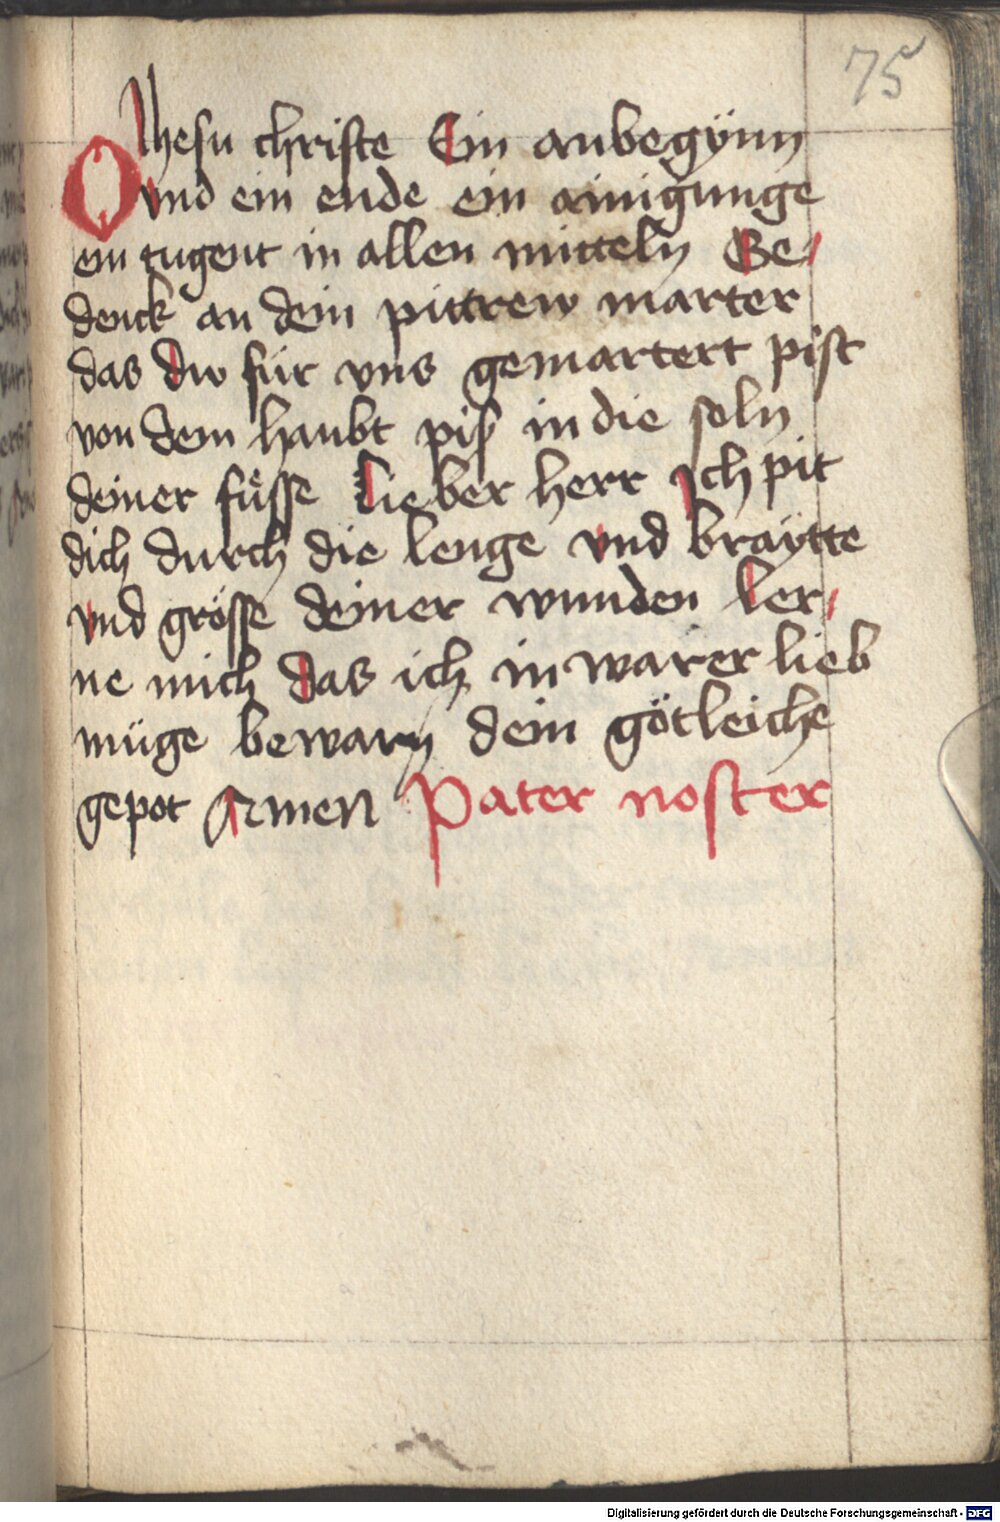 75
O Jhesu christe Ein anbegÿnn
vnd ein ende ein ainigunge
ein tugent in allen mitteln Ge-
denck an dein pittrew marter
das dw für vns gemartert pist
von dem haubt piß in die soln
deiner füsse Lieber herr Ich pit
dich durch die lenge vnd braÿtte
vnd grösse deiner wunden ler-
ne mich das ich in warer lieb
müge bewarn dein götleiche
gepot Amen Pater noster
Digitalisierung gefördert durch die Deutsche Forschungsgemeinschaft - DFG